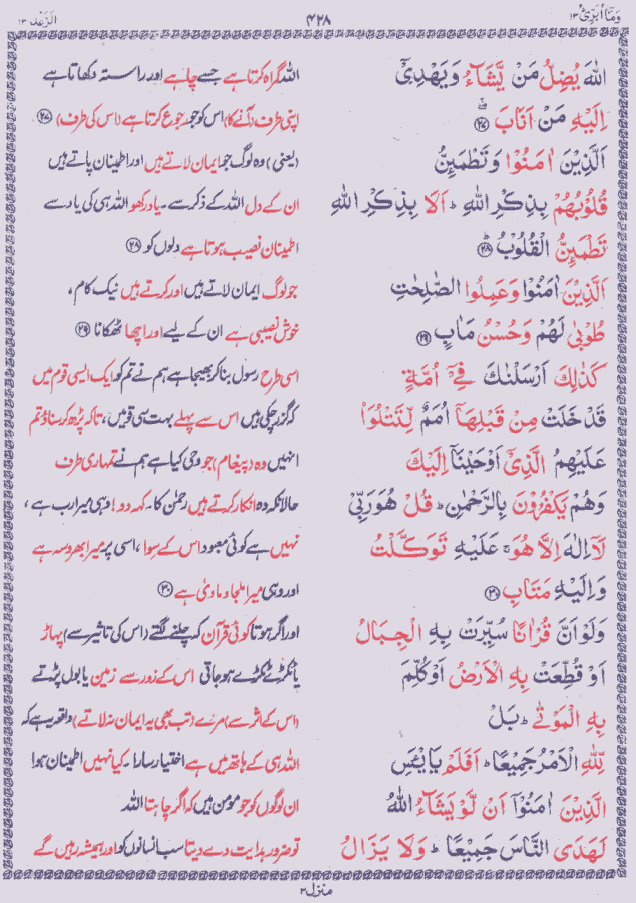 وَمَآ اُبَرِّئُ ۱۳ ۴۲۸ اَلرَّعْد ۱۳
اللّٰهَ يُضِلُّ مَنْ يَّشَآءُ وَيَهْدِيْٓ اللہ گمراہ کرتا ہے جسے چاہے اور راستہ دکھاتا ہے
اِلَيْهِ مَنْ اَنَابَ ۲۷ اپنی طرف (آنے کا) اس کو جو رجوع کرتا ہے (اس کی طرف) ۲۷
اَلَّذِيْنَ اٰمَنُوْا وَتَطْمَىِٕنُّ (یعنی) وہ لوگ جو ایمان لاتے ہیں اور اطمینان پاتے ہیں
قُلُوْبُهُمْ بِذِكْرِ اللّٰهِ ؕ اَلَا بِذِكْرِ اللّٰهِ ان کے دل اللہ کے ذکر سے۔ یاد رکھو اللہ ہی کی یاد سے
تَطْمَىِٕنُّ الْقُلُوْبُ ۲۸ اطمینان نصیب ہوتا ہے دلوں کو ۲۸
اَلَّذِيْنَ اٰمَنُوْا وَعَمِلُوا الصّٰلِحٰتِ جو لوگ ایمان لاتے ہیں اور کرتے ہیں نیک کام،
طُوْبٰى لَهُمْ وَحُسْنُ مَاٰبٍ ۲۹ خوش نصیبی ہے ان کے لیے اور اچھا ٹھکانا ۲۹
كَذٰلِكَ اَرْسَلْنٰكَ فِيْٓ اُمَّةٍ اسی طرح رسول بنا کر بھیجا ہے ہم نے تم کو ایک ایسی قوم میں
قَدْ خَلَتْ مِنْ قَبْلِهَآ اُمَمٌ لِّتَتْلُوَا۟ کہ گزر چکی ہیں اس سے پہلے بہت سی قومیں، تاکہ پڑھ کر سناؤ تم
عَلَيْهِمُ الَّذِيْٓ اَوْحَيْنَآ اِلَيْكَ انہیں وہ (پیغام) جو وحی کیا ہے ہم نے تمہاری طرف
وَهُمْ يَكْفُرُوْنَ بِالرَّحْمٰنِ ؕ قُلْ هُوَ رَبِّيْ حالانکہ وہ انکار کرتے ہیں رحمٰن کا۔ کہہ دو! وہی میرا رب ہے،
لَآ اِلٰهَ اِلَّا هُوَ ۚ عَلَيْهِ تَوَكَّلْتُ نہیں ہے کوئی معبود اس کے سوا، اسی پر میرا بھروسہ ہے
وَاِلَيْهِ مَتَابِ ۳۰ اور وہی میرا ملجا و ماویٰ ہے ۳۰
وَلَوْ اَنَّ قُرْاٰنًا سُيِّرَتْ بِهِ الْجِبَالُ اور اگر ہوتا کوئی قرآن کہ چلنے لگتے (اس کی تاثیر سے) پہاڑ
اَوْ قُطِّعَتْ بِهِ الْاَرْضُ اَوْ كُلِّمَ یا ٹکڑے ٹکڑے ہو جاتی اس کے زور سے زمین یا بول پڑتے
بِهِ الْمَوْتٰى ؕ بَلْ (اس کے اثر سے) مردے (تب بھی یہ ایمان نہ لاتے) واقعہ یہ ہے کہ
لِّلّٰهِ الْاَمْرُ جَمِيْعًا ؕ اَفَلَمْ يَايْـَٔسِ اللہ ہی کے ہاتھ میں ہے اختیار سارا۔ کیا نہیں اطمینان ہوا
الَّذِيْنَ اٰمَنُوْٓا اَنْ لَّوْ يَشَآءُ اللّٰهُ ان لوگوں کو جو مومن ہیں کہ اگر چاہتا اللہ
لَهَدَى النَّاسَ جَمِيْعًا ؕ وَلَا يَزَالُ تو ضرور ہدایت دے دیتا سب انسانوں کو اور ہمیشہ رہیں گے
منزل ۳